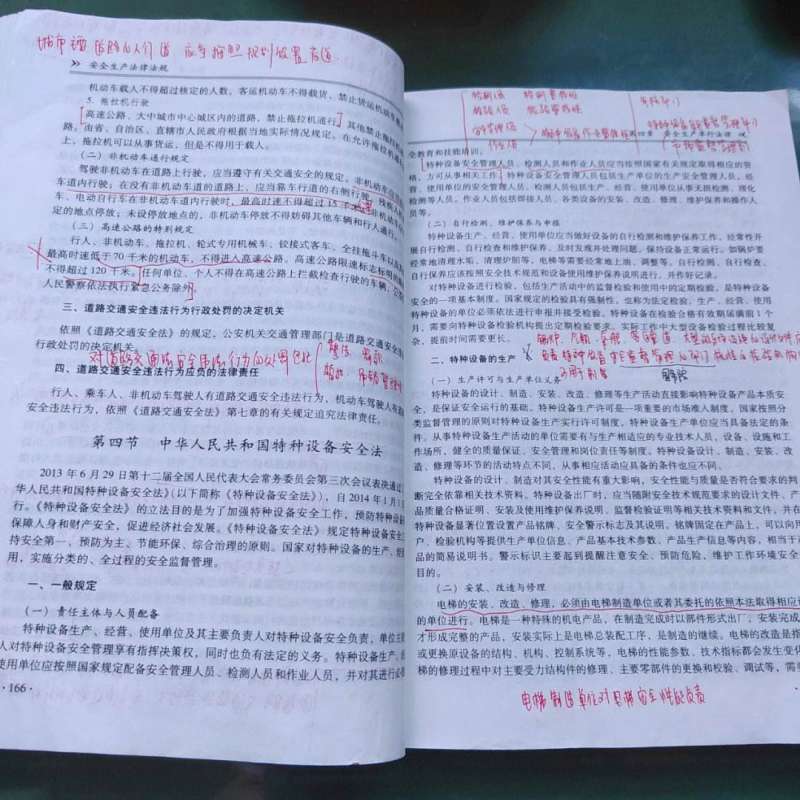 城市 道路 人行道 应当按照规划设置盲道
安全生产法律法规
机动车载人不得超过核定的人数,客运机动车不得载货,禁止货运机动车
5. 拖拉机行驶
高速公路、大中城市中心城区内的道路,禁止拖拉机通行。其他禁止拖拉机
路,由省、自治区、直辖市人民政府根据当地实际情况规定。在允许拖拉机通
上,拖拉机可以从事货运,但是不得用于载人。
(二)非机动车通行规定
驾驶非机动车在道路上行驶,应当遵守有关交通安全的规定,非机动车应
车道内行驶;在没有非机动车道的道路上,应当靠车行道的右侧行驶。
车、电动自行车在非机动车道内行驶时,最高时速不得超过 15
的地点停放;未设停放地点的,非机动车停放不得妨碍其他车辆和行人通行。
(三)高速公路的特别规定
行人、非机动车、拖拉机、轮式专用机械车、铰接式客车、全挂拖斗车以
最高时速低于 70 千米的机动车,不得进入高速公路。高速公路限速标志标明的
不得超过 120 千米。任何单位、个人不得在高速公路上拦截检查行驶的车辆,公
人民警察依法执行紧急公务除外。
三、道路交通安全违法行为行政处罚的决定机关
依照《道路交通安全法》的规定,公安机关交通管理部门是道路交通安全
的决定机关。
对道路交通安全违法行为的处罚包括 警告 罚款
四、道路交通安全违法行为应负的法律责任
行人、乘车人、非机动车驾驶人有道路交通安全违法行为,机动车驾驶人有道路
安全违法行为,依照《道路交通安全法》第七章的有关规定追究法律责任。
第四节 中华人民共和国特种设备安全法
2013 年 6 月 29 日第十二届全国人民代表大会常务委员会第三次会议表决通过
华人民共和国特种设备安全法》(以下简称《特种设备安全法》),自 2014 年 1 月 1
行。《特种设备安全法》的立法目的是为了加强特种设备安全工作,预防特种设备
保障人身和财产安全,促进经济社会发展。《特种设备安全法》规定特种设备安全工
持安全第一、预防为主、节能环保、综合治理的原则。国家对特种设备的生产、经
用,实施分类的、全过程的安全监督管理。
一、一般规定
(一)责任主体与人员配备
特种设备生产、经营、使用单位及其主要负责人对特种设备安全负责,单位主
人对特种设备安全管理享有指挥决策权,同时也负有法定的义务。特种设备生产、
使用单位应按照国家规定配备安全管理人员、检测人员和作业人员,并对其进行必
· 166 ·
检测员
特种设备
安全生产单行法律
全教育和技能培训。
特种设备安全管理人员、检测人员和作业人员应当按照国家有关规定取得相应的资
格,方可从事相关工作。特种设备安全管理人员包括生产单位的生产安全管理人员,经
营、使用单位的安全管理人员。检测人员包括生产、经营、使用单位从事无损检测、理化
检测等人员。作业人员包括焊接人员,各类设备的安装、改造、修理、维护保养和操作人
员等。
(二)自行检测、维护保养与申报
特种设备生产、经营、使用单位应当做好设备的自行检测和维护保养工作,经常性开
展自行检测、自行检查和维护保养,及时发现并处理问题,保持设备正常运行。如锅炉要
经常地清理水垢、清理炉胆等,电梯等需要经常地上油、调整等。自行检测、自行检查、
自行保养应该按照安全技术规范和设备使用维护保养说明进行,并作好记录。
对特种设备进行检验,包括生产活动中的监督检验和使用中的定期检验,是特种设备
安全的一项基本制度。国家规定的检验具有强制性,也称为法定检验。生产、经营、使用
特种设备的单位必须依法进行申报并接受检验。特种设备在检验合格有效期届满前 1 个
月,需要向特种设备检验机构提出定期检验要求。实际工作中大型设备检验过程比较复
杂,提前时间需要更长。
二、特种设备的生产
(一)生产许可与生产单位义务
特种设备的设计、制造、安装、改造、修理等生产活动直接影响特种设备产品本质安
全,是保证安全运行的基础。特种设备生产许可是一项重要的市场准入制度,国家按照分
类监督管理的原则对特种设备生产实行许可制度,特种设备生产单位应当具备法定的条
件。从事特种设备生产活动的单位需要有与生产相适应的专业技术人员、设备、设施和工
作场所,健全的质量保证、安全管理和岗位责任等制度。特种设备设计、制造、安装、改
造、修理等环节的活动特点不同,从事相应活动应具备的条件也应不同。
特种设备的设计、制造对其安全性能有重大影响,安全性能与质量是否符合要求的判
断完全依靠相关技术资料。特种设备出厂时,应当随附安全技术规范要求的设计文件、产
品质量合格证明、安装及使用维护保养说明、监督检验证明等相关技术资料和文件,并在
特种设备显著位置设置产品铭牌、安全警示标志及其说明。铭牌固定在产品上,可以向用
户、检验机构等提供生产单位信息、产品基本技术参数、产品生产信息等内容,相当于产
品的简易说明书。警示标识主要起到提醒注意安全、预防危险、维护工作环境安全
目的。
(二)安装、改造与修理
电梯的安装、改造、修理,必须由电梯制造单位或者其委托的依照本法取得相应许
的单位进行。电梯是一种特殊的机电产品,在制造完成时以部件形式出厂,安装完成
才形成完整的产品,安装实际上是电梯总装配工序,是制造的继续。电梯的改造是指
或更换原设备的结构、机构、控制系统等,电梯的性能参数、技术指标都会发生变化
梯的修理过程中对主要受力结构件的修理、主要零部件的更换和校验、调试等,需
电梯制造单位对电梯安全性能负责